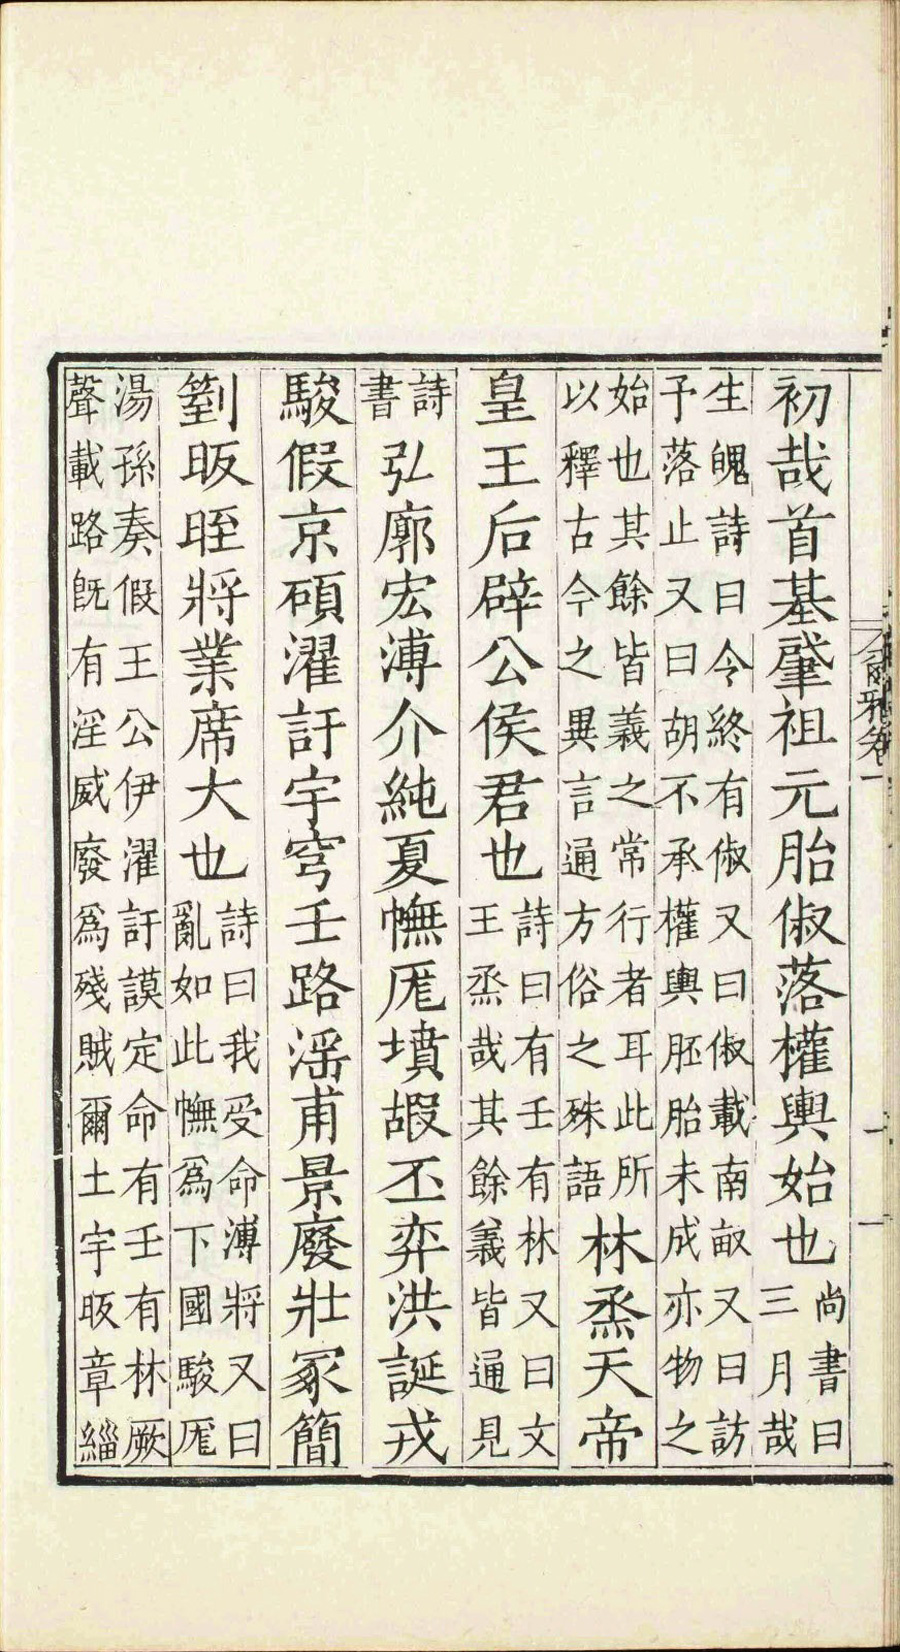 初哉首基肇祖元胎俶落權輿始也尚書曰三月哉
生魄詩曰令終有俶又曰俶載南畝又曰訪
予落止又曰胡不承權輿胚胎未成亦物之
始也其餘皆義之常行者耳此所以釋古今之異言通方俗之殊語林烝天帝
皇王后辟公侯君也詩曰有壬有林又曰文王烝哉其餘義皆通見
詩書弘廓宏溥介純夏幠厖墳嘏丕弈洪誕戎
駿假京碩濯訏宇穹壬路淫甫景廢壯冢簡
箌昄晊將業席大也詩曰我受命溥將又曰亂如此幠爲下國駿厖
湯孫奏假王公伊濯訏謨定命有壬有林厥
聲載路旣有淫威廢爲殘賊爾土宇昄章緇